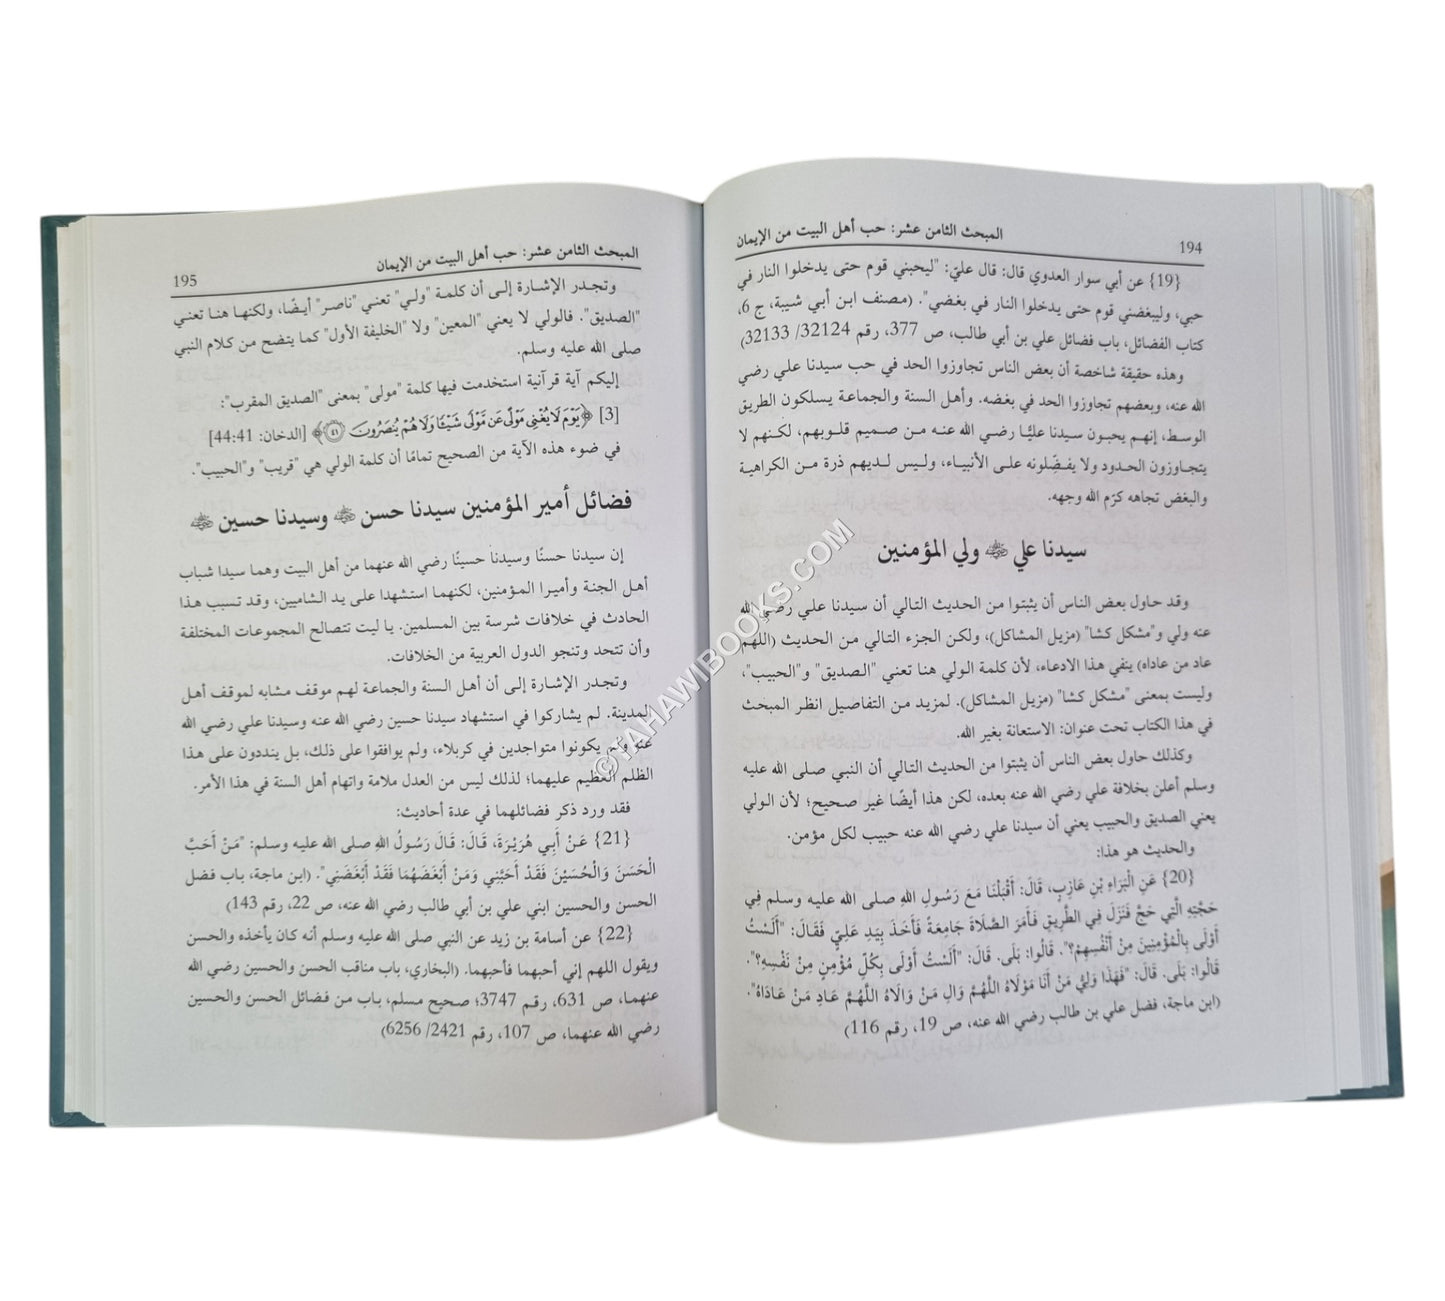 194
المبحث الثامن عشر: حب أهل البيت من الإيمان
{19} عن أبي سوار العدوي قال: قال عليّ: "ليحبني قوم حتى يدخلوا النار في
حبي، وليبغضني قوم حتى يدخلوا النار في بغضي". (مصنف ابن أبي شيبة، ج 6،
كتاب الفضائل، باب فضائل علي بن أبي طالب، ص 377، رقم 32124 /32133)
وهذه حقيقة شاخصة أن بعض الناس تجاوزوا الحد في حب سيدنا علي رضي
الله عنه، وبعضهم تجاوزوا الحد في بغضه. وأهل السنة والجماعة يسلكون الطريق
الوسط، إنهم يحبون سيدنا عليًّا رضي الله عنه من صميم قلوبهم، لكنهم لا
يتجاوزون الحدود ولا يفضّلونه على الأنبياء، وليس لديهم ذرة من الكراهية
والبغض تجاهه كرّم الله وجهه.
سيدنا علي ﵁ ولي المؤمنين
وقد حاول بعض الناس أن يثبتوا من الحديث التالي أن سيدنا علي رضي الله
عنه ولي و"مشكل كشا" (مزيل المشاكل)، ولكن الجزء التالي من الحديث (اللهم
عاد من عاداه) ينفي هذا الادعاء، لأن كلمة الولي هنا تعني "الصديق" و"الحبيب"،
وليست بمعنى "مشكل كشا" (مزيل المشاكل). لمزيد من التفاصيل انظر المبحث
في هذا الكتاب تحت عنوان: الاستعانة بغير الله.
وكذلك حاول بعض الناس أن يثبتوا من الحديث التالي أن النبي صلى الله عليه
وسلم أعلن بخلافة علي رضي الله عنه بعده، لكن هذا أيضًا غير صحيح؛ لأن الولي
يعني الصديق والحبيب يعني أن سيدنا علي رضي الله عنه حبيب لكل مؤمن.
والحديث هو هذا:
{20} عَنِ الْبَرَاءِ بْنِ عَازِبٍ، قَالَ: أَقْبَلْنَا مَعَ رَسُولِ اللهِ صلى الله عليه وسلم فِي
حَجَّتِهِ الَّتِي حَجَّ فَنَزَلَ فِي الطَّرِيقِ فَأَمَرَ الصَّلَاةَ جَامِعَةً فَأَخَذَ بِيَدِ عَلِيٍّ فَقَالَ: "أَلَسْتُ
أَوْلَى بِالْمُؤْمِنِينَ مِنْ أَنْفُسِهِمْ؟". قَالُوا: بَلَى. قَالَ: "أَلَسْتُ أَوْلَى بِكُلِّ مُؤْمِنٍ مِنْ نَفْسِهِ؟".
قَالُوا: بَلَى. قَالَ: "فَهَذَا وَلِيُّ مَنْ أَنَا مَوْلَاهُ اللَّهُمَّ وَالِ مَنْ وَالَاهُ اللَّهُمَّ عَادِ مَنْ عَادَاهُ".
(ابن ماجة، فضل علي بن طالب رضي الله عنه، ص 19، رقم 116)
المبحث الثامن عشر: حب أهل البيت من الإيمان
195
وتجدر الإشارة إلى أن كلمة "ولي" تعني "ناصر" أيضًا، ولكنها هنا تعني
"الصديق". فالولي لا يعني "المعين" ولا "الخليفة الأول" كما يتضح من كلام النبي
صلى الله عليه وسلم.
إليكم آية قرآنية استخدمت فيها كلمة "مولى" بمعنى "الصديق المقرب":
[3] ﴿يَوْمَ لَا يُغْنِى مَوْلًى عَن مَّوْلًى شَيْـًٔا وَلَا هُمْ يُنصَرُونَ ۝٤١﴾ [الدخان: 44:41]
في ضوء هذه الآية من الصحيح تمامًا أن كلمة الولي هي "قريب" و"الحبيب".
فضائل أمير المؤمنين سيدنا حسن ﵁ وسيدنا حسين ﵁
إن سيدنا حسنًا وسيدنا حسينًا رضي الله عنهما من أهل البيت وهما سيدا شباب
أهل الجنة وأميرا المؤمنين، لكنهما استشهدا على يد الشاميين، وقد تسبب هذا
الحادث في خلافات شرسة بين المسلمين. يا ليت تتصالح المجموعات المختلفة
وأن تتحد وتنجو الدول العربية من الخلافات.
وتجدر الإشارة إلى أن أهل السنة والجماعة لهم موقف مشابه لموقف أهل
المدينة. لم يشاركوا في استشهاد سيدنا حسين رضي الله عنه وسيدنا علي رضي الله
عنه ولم يكونوا متواجدين في كربلاء، ولم يوافقوا على ذلك، بل ينددون على هذا
الظلم العظيم عليهما؛ لذلك ليس من العدل ملامة واتهام أهل السنة في هذا الأمر.
فقد ورد ذكر فضائلهما في عدة أحاديث:
{21} عَنْ أَبِي هُرَيْرَةَ، قَالَ: قَالَ رَسُولُ اللهِ صلى الله عليه وسلم: "مَنْ أَحَبَّ
الْحَسَنَ وَالْحُسَيْنَ فَقَدْ أَحَبَّنِي وَمَنْ أَبْغَضَهُمَا فَقَدْ أَبْغَضَنِي". (ابن ماجة، باب فضل
الحسن والحسين ابني علي بن أبي طالب رضي الله عنه، ص 22، رقم 143)
{22} عن أسامة بن زيد عن النبي صلى الله عليه وسلم أنه كان يأخذه والحسن
ويقول اللهم إني أحبهما فأحبهما. (البخاري، باب مناقب الحسن والحسين رضي الله
عنهما، ص 631، رقم 3747؛ صحيح مسلم، باب من فضائل الحسن والحسين
رضي الله عنهما، ص 107، رقم 2421 /6256)
©TAHAWIBOOKS.COM